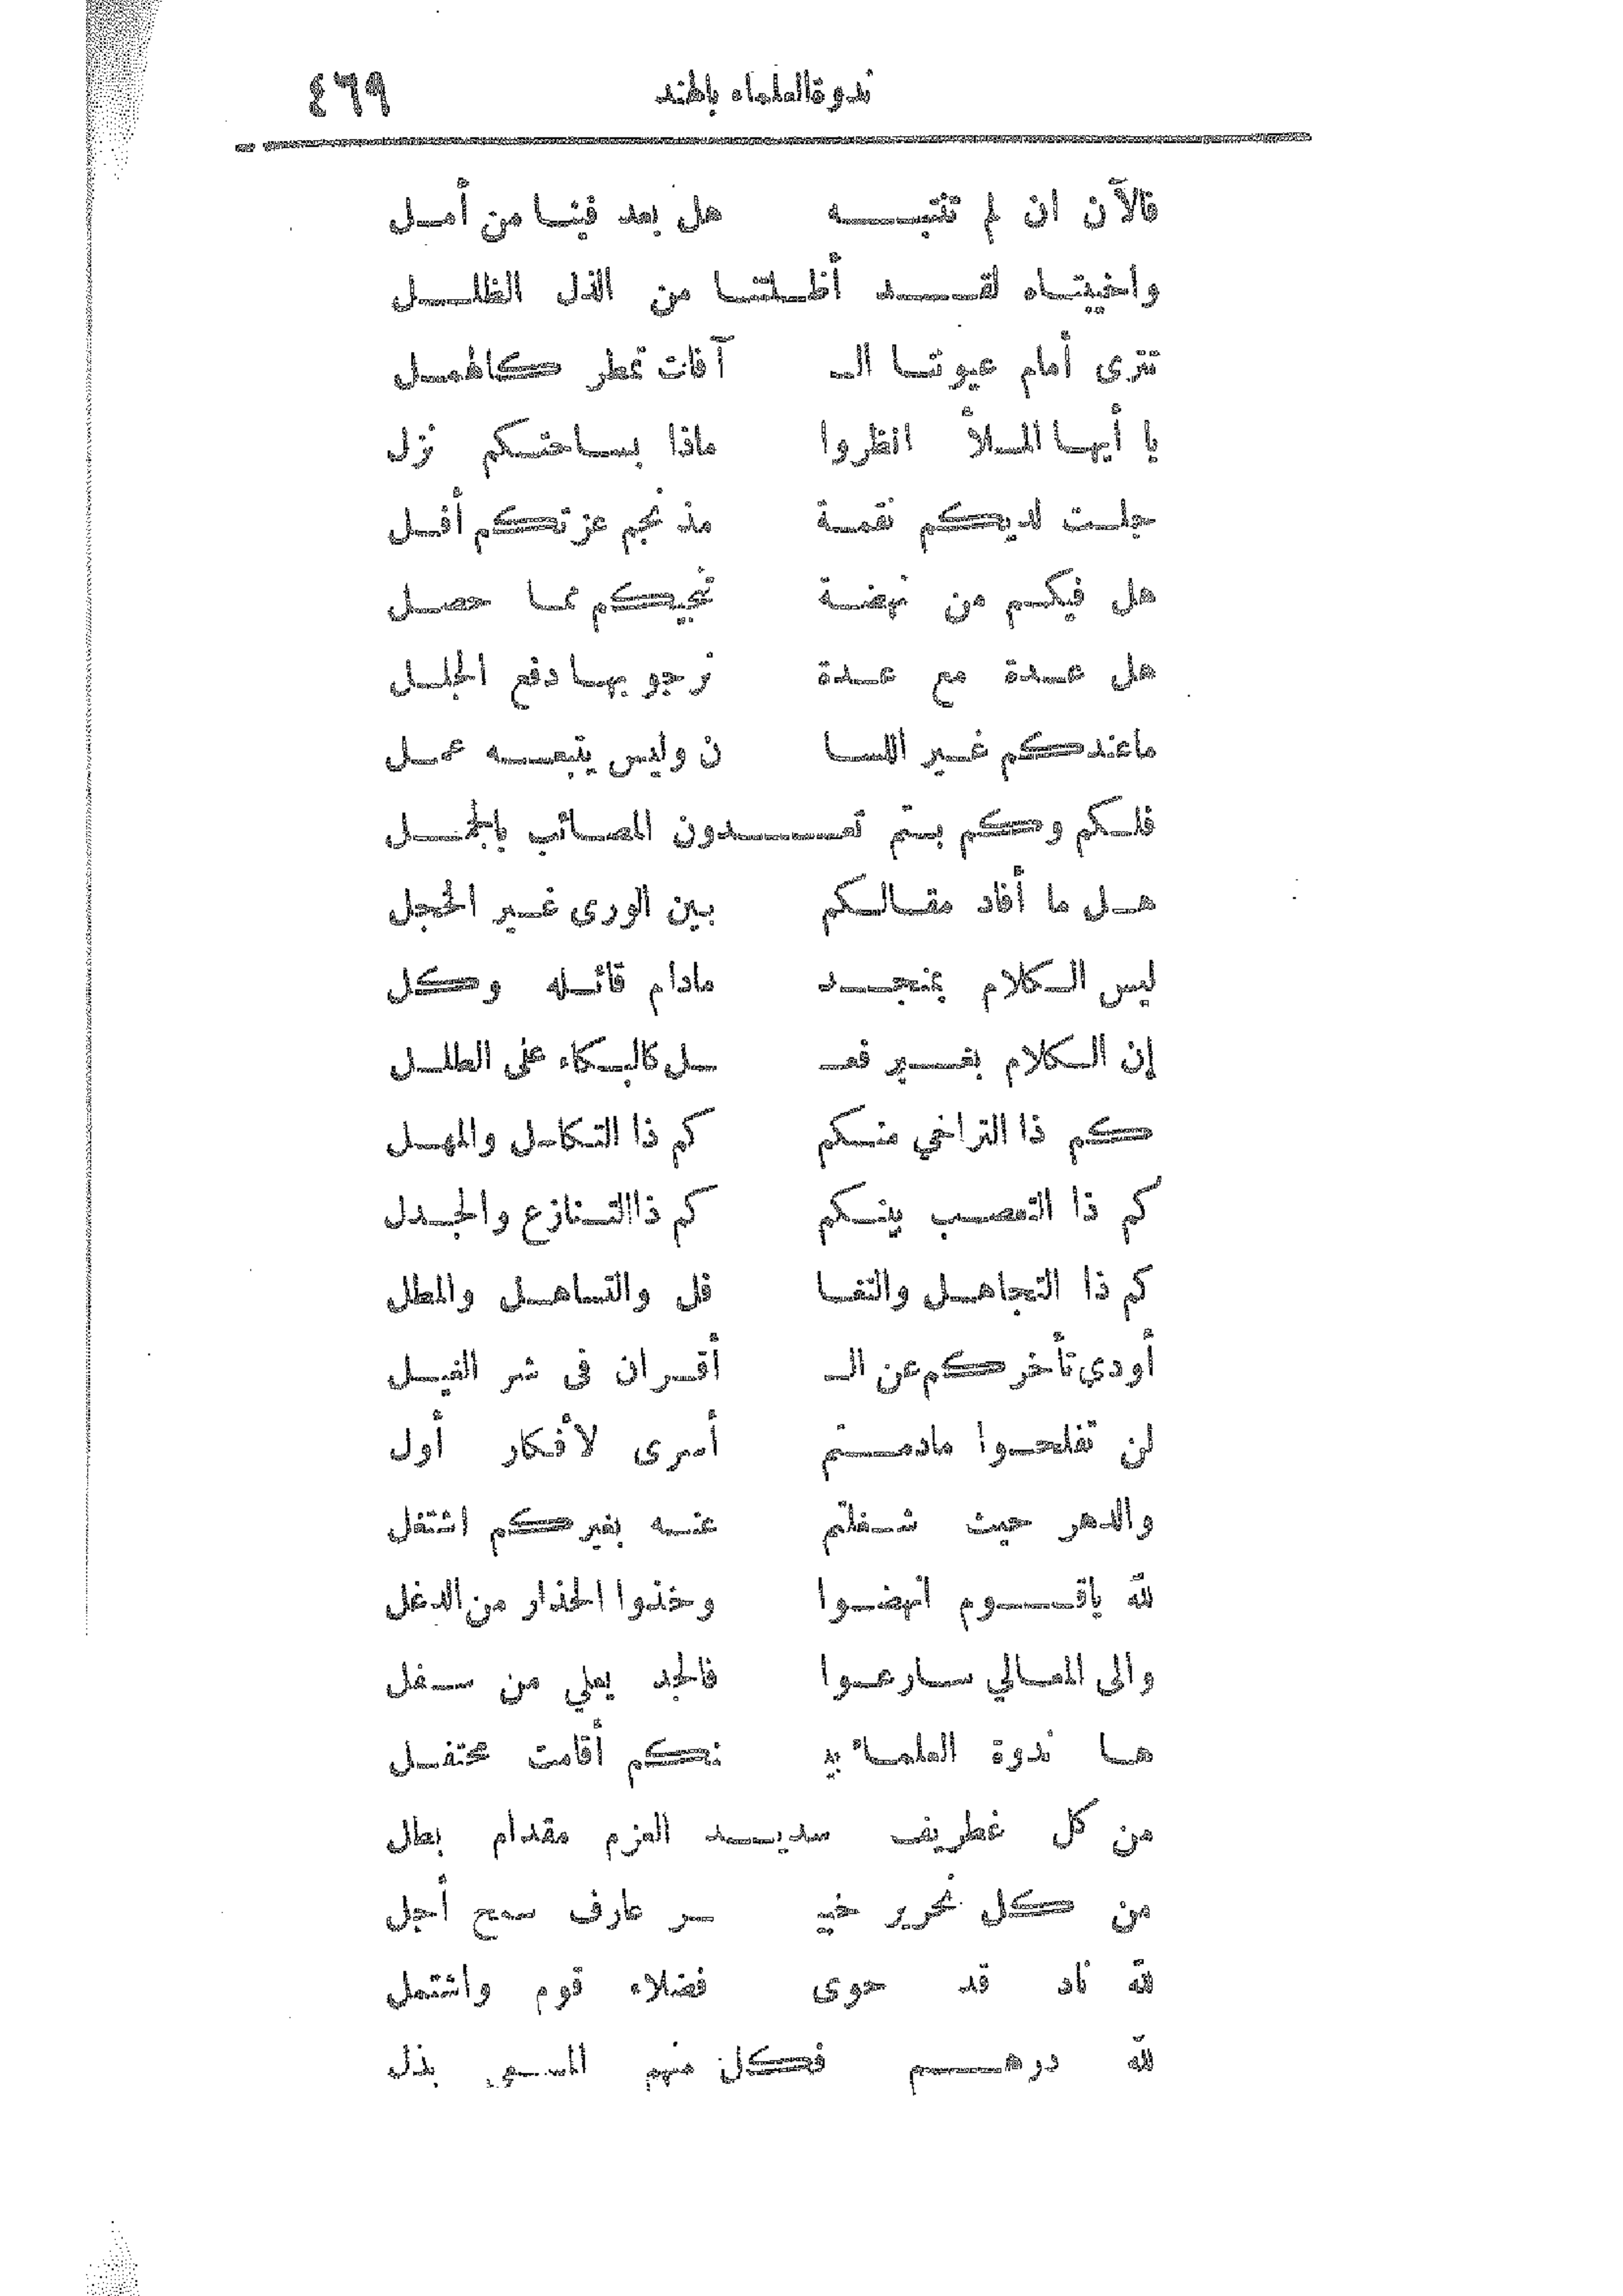 ندوة العلماء بالهند ٤٦٩
فالآن ان لم تنتبه هل بعد فينا من أمل
واخيبتاه لقد أظلتنا من الذل الظلل
تترى أمام عيوننا الـ آفات تمطر كالهمل
يا أيها الملأ انظروا ماذا بساحتكم نزل
جلت لديكم نقمة مذ نجم عزتكم أفل
هل فيكم من نهضة تنجيكم مما حصل
هل عدة مع عدة نرجو بها دفع الجلل
ما عندكم غير اللسا ن وليس يتبعه عمل
فلكم وكم بتم تعدون المصائب بالجمل
هل ما أفاد مقالكم بين الورى غير الخجل
ليس الكلام بمنجد مادام قائله وكل
إن الكلام بغير فعـ ـل كالبكاء على الطلل
كم ذا التراخي منكم كم ذا التكاسل والمهل
كم ذا التعصب بينكم كم ذا التنازع والجدل
كم ذا التجاهل والتغا فل والتساهل والمطل
أودي تأخركم عن الـ أقران في شر الغيل
لن تفلحوا مادمتم أسرى لأفكار أول
والدهر حيث شغلتم عنه بغيركم اشتغل
لله ياقوم انهضوا وخذوا الحذار من الدغل
والى المعالي سارعوا فالجد يعلي من سفل
ها ندوة العلماء بيـ ـنكم أقامت محتفل
من كل غطريف سديد العزم مقدام بطل
من كل نحرير خبيـ ـر عارف سمح أجل
لله ناد قد حوى فضلاء قوم واشتمل
لله درهم فكل منهم بذل